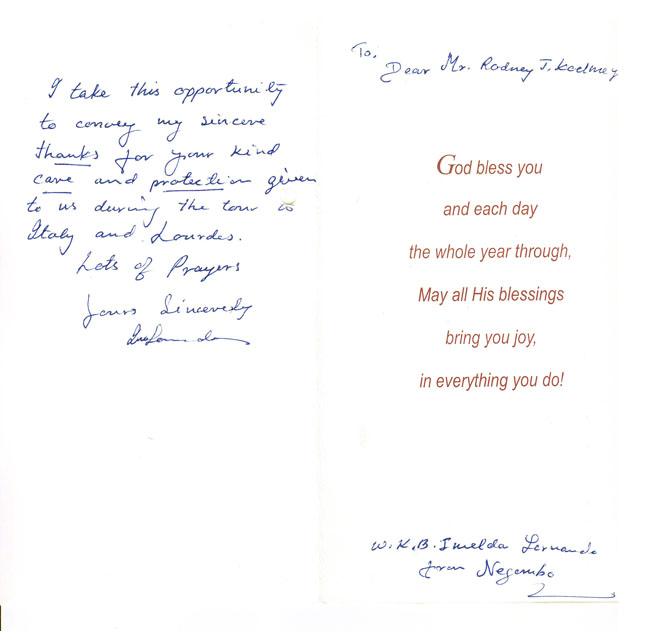 I take this opportunity
to convey my sincere
thanks for your kind
care and protection given
to us during the tour to
Italy and Lourdes.
Lots of Prayers
Yours Sincerely
To,
Dear Mr. Rodney J.
God bless you
and each day
the whole year through,
May all His blessings
bring you joy,
in everything you do!
W.K.B. Imelda Fernando
from Negombo